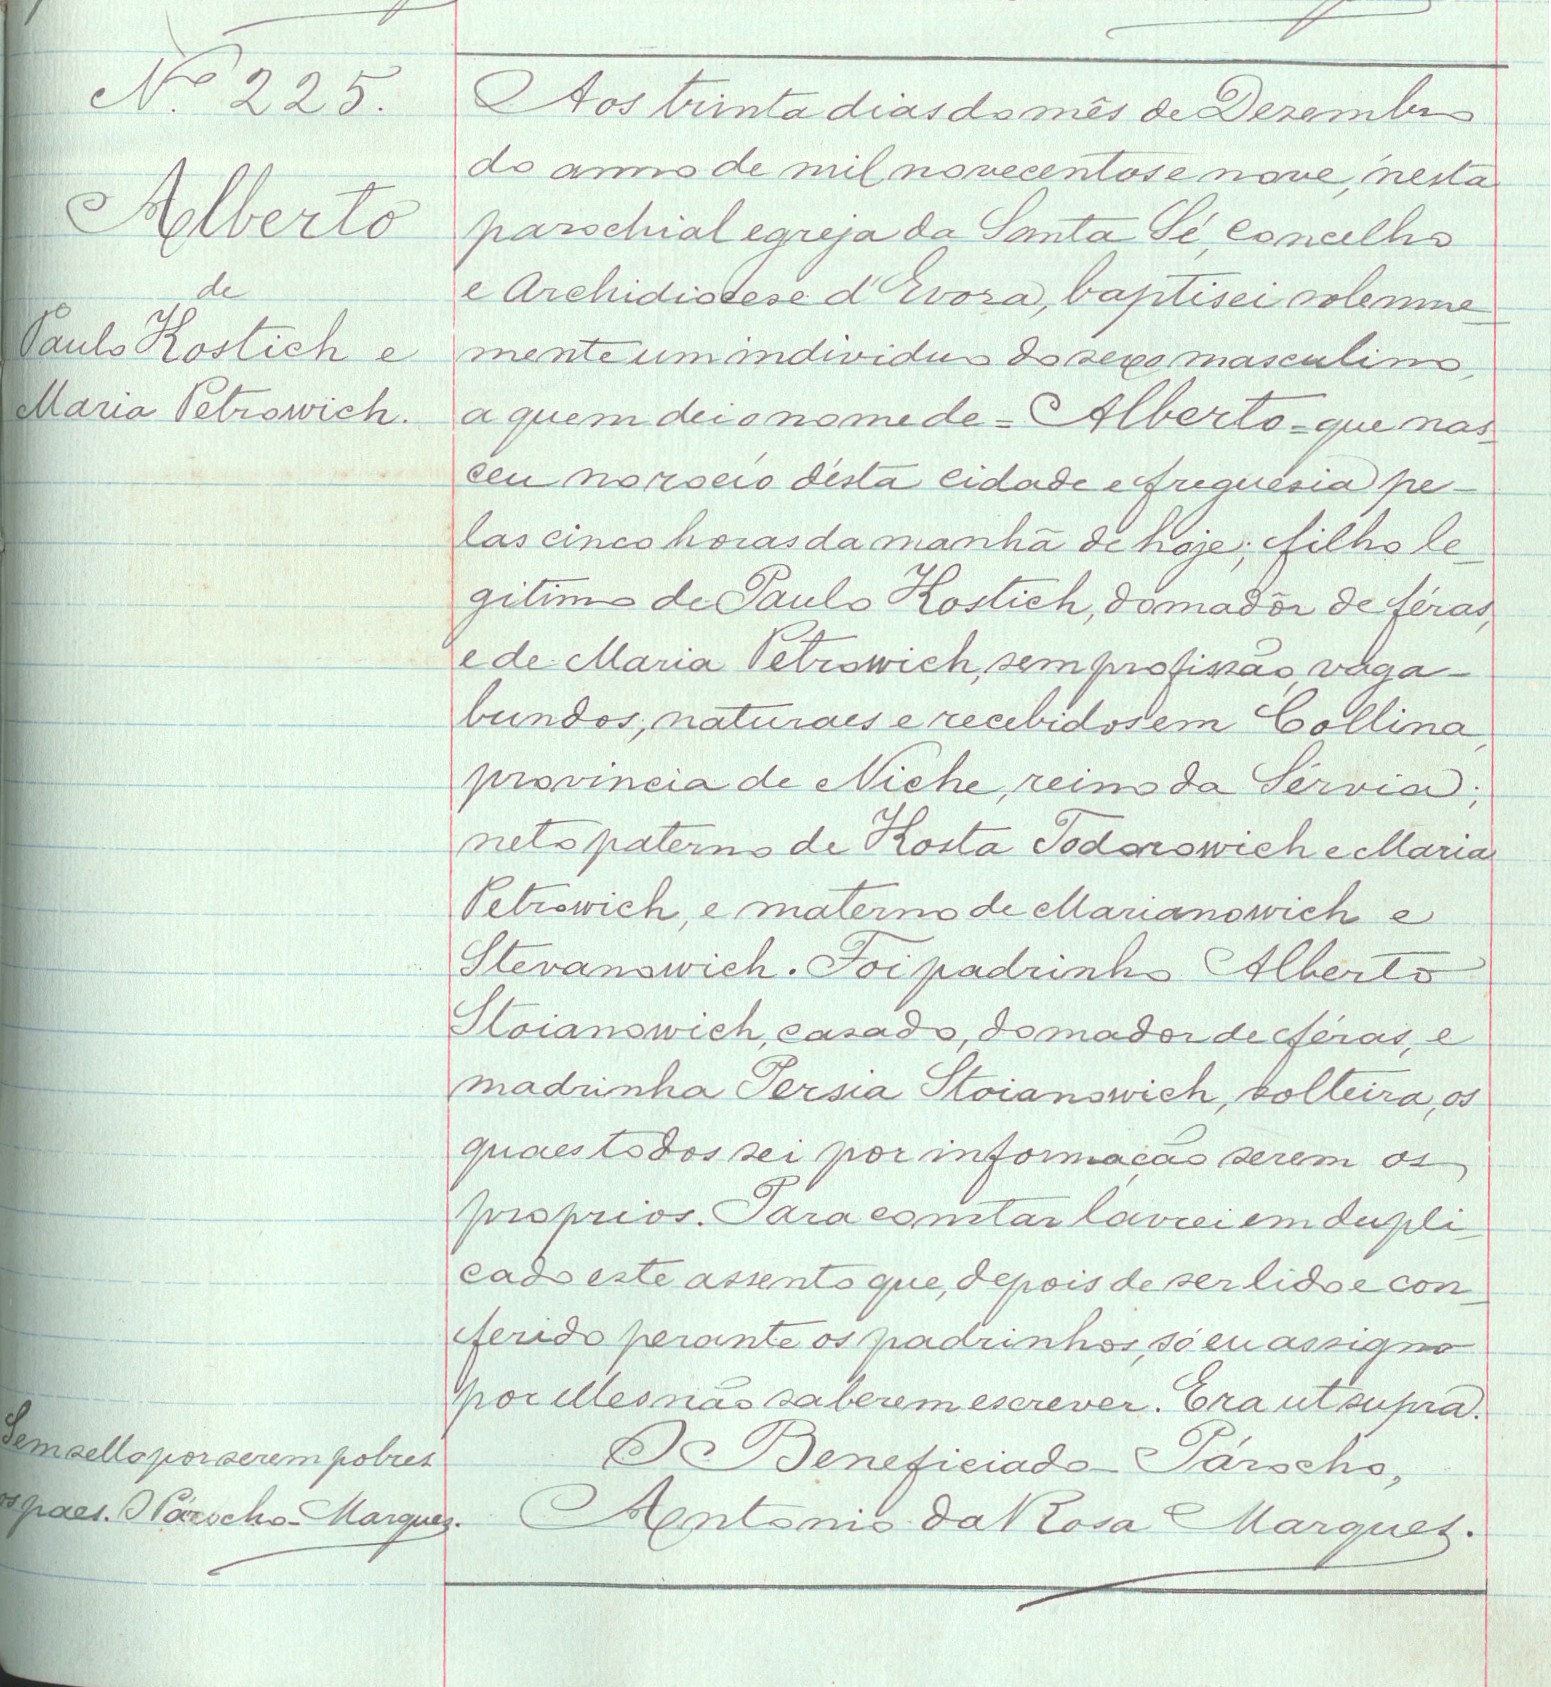 Nº 225.
Alberto
de
Paulo Kostich e
Maria Petrowich.
Aos trinta dias do mês de Dezembro
do anno de mil novecentos e nove, nesta
parochial egreja da Santa Sé, concelho
e Archidiocese d'Evora, baptisei solemne-
mente um individuo do sexo masculino,
a quem dei o nome de = Alberto = que nas-
ceu no rocio désta cidade e freguesia pe-
las cinco horas da manhã de hoje; filho le-
gitimo de Paulo Kostich, domadôr de féras,
e de Maria Petrowich, sem profissão, vaga-
bundos, naturaes e recebidos em Collina,
provincia de Niche, reino da Sérvia;
neto paterno de Kosta Todorowich e Maria
Petrowich, e materno de Marianowich e
Stevanowich. Foi padrinho Alberto
Stoianowich, casado, domador de féras, e
madrinha Persia Stoianowich, solteira, os
quaes todos sei por informação serem os
proprios. Para constar lavrei em dupli-
cado este assento que, depois de ser lido e con-
ferido perante os padrinhos, só eu assigno
por elles não saberem escrever. Era ut supra.
O Beneficiado-Párocho,
Antonio da Rosa Marques.
Sem sello por serem pobres
os paes. O Párocho-Marques.